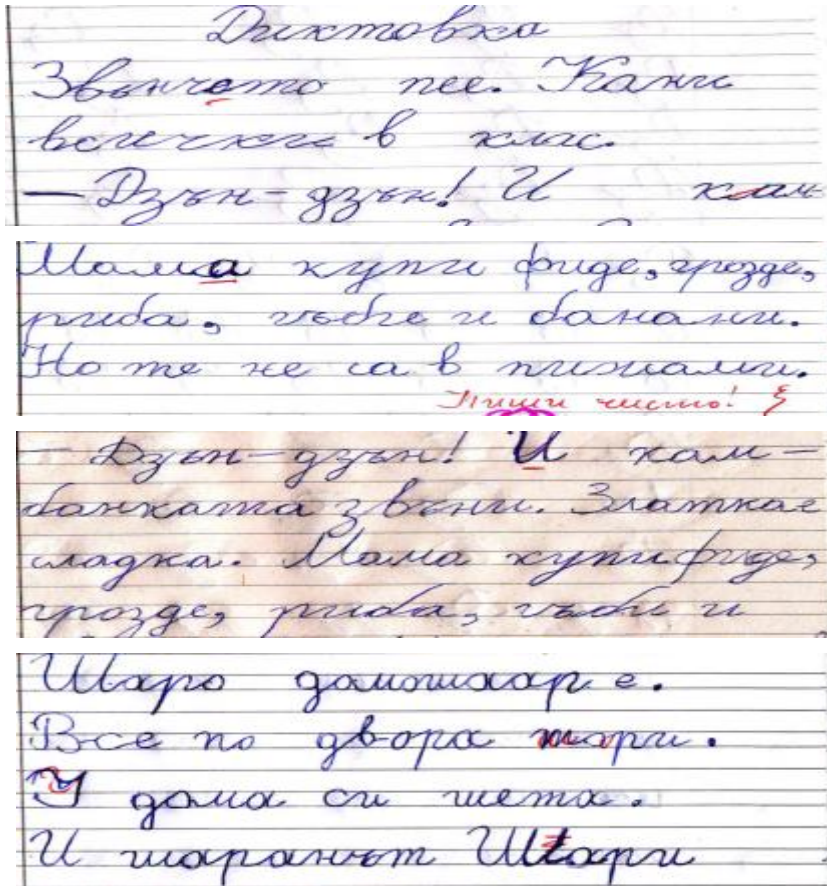 Диктовка
Звънчето пее. Кани
всички в клас.
— Дзън-дзън! И кам
Мама купи фиде, грозде,
риба, гъби и банани.
Но те не са в пижами.
Пиши чисто!
— Дзън-дзън! И кам-
банката звъни. Златка е
сладка. Мама купи фиде,
грозде, риба, гъби и
Шаро домошар е.
Все по двора шари.
У дома си шета.
И шаранът Шари